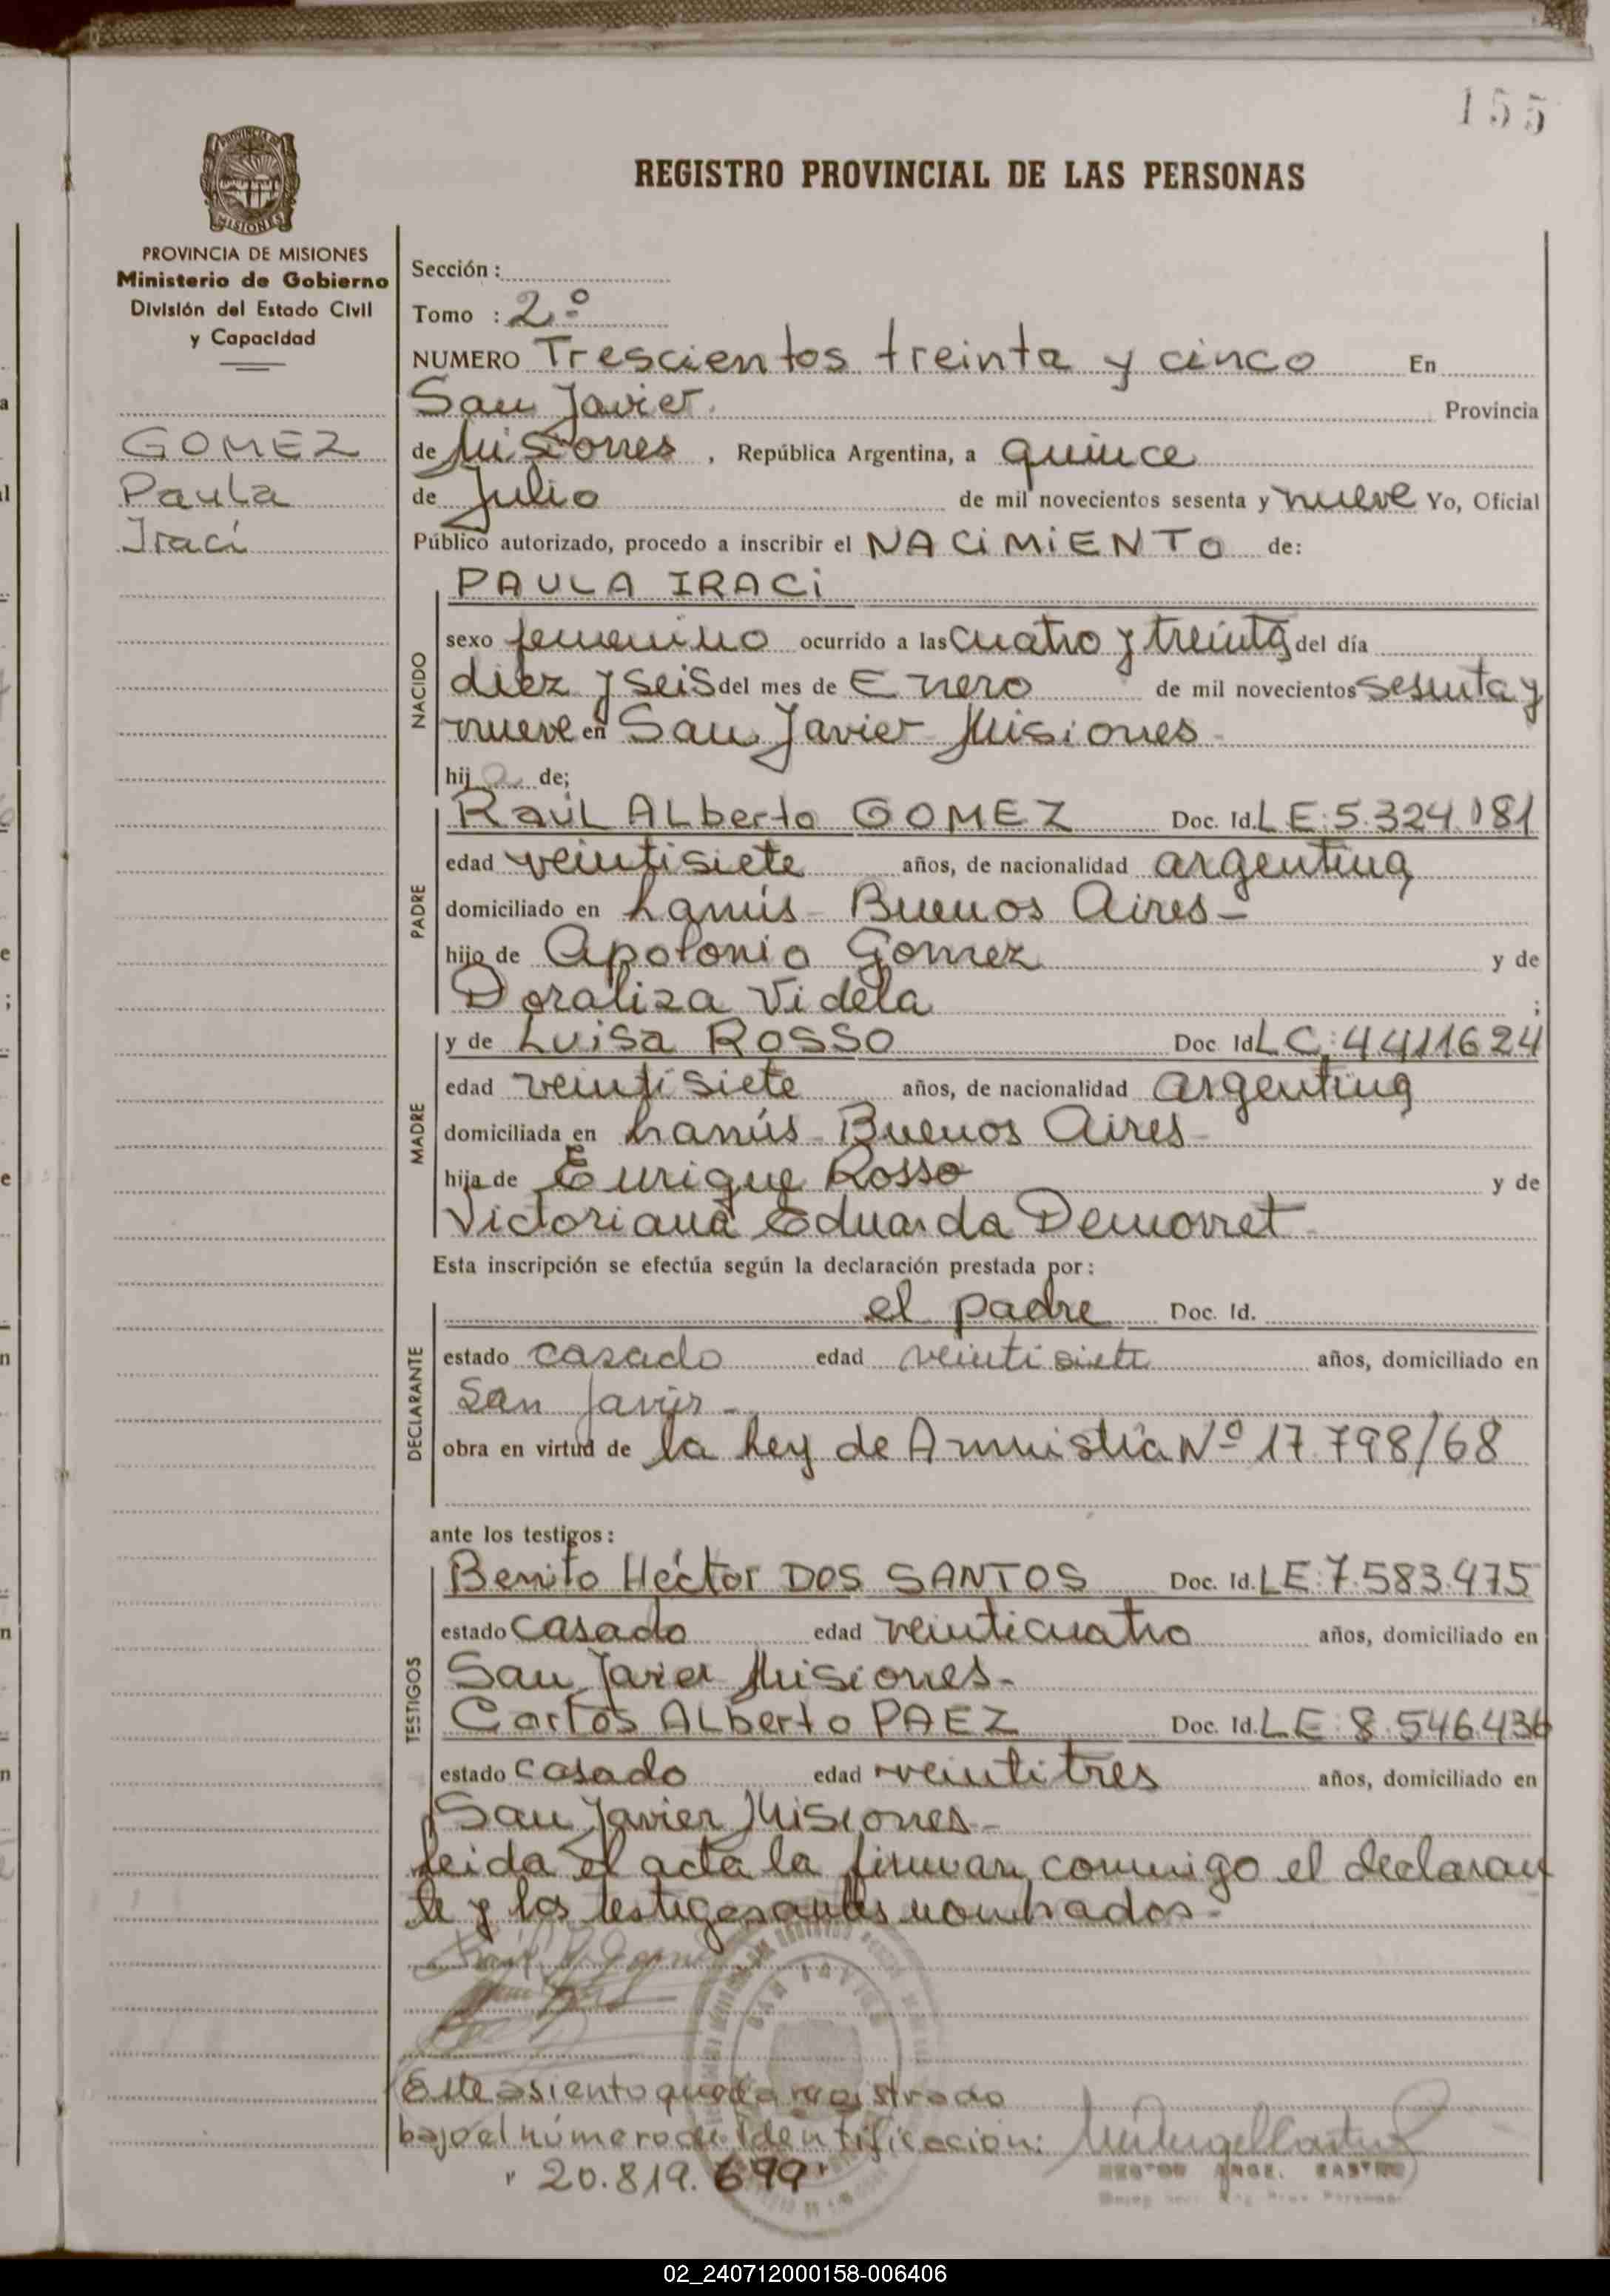 155
PROVINCIA DE
MISIONES
REGISTRO PROVINCIAL DE LAS PERSONAS
PROVINCIA DE MISIONES
Ministerio de Gobierno
División del Estado Civil
y Capacidad
GOMEZ
Paula
Iraci
Sección:
Tomo : 2º
NUMERO Trescientos treinta y cinco En
San Javier Provincia
de Misiones, República Argentina, a quince
de Julio de mil novecientos sesenta y nueve Yo, Oficial
Público autorizado, procedo a inscribir el NACIMIENTO de:
NACIDO
PAULA IRACI
sexo femenino ocurrido a las cuatro y treinta del día
diez y seis del mes de Enero de mil novecientos sesenta y
nueve en San Javier Misiones -
hija de;
PADRE
Raúl ALberto GOMEZ Doc. Id. LE: 5.324.181
edad veintisiete años, de nacionalidad argentina
domiciliado en Lanús - Buenos Aires -
hijo de Apolonio Gomez y de
Doraliza Videla ;
MADRE
y de Luisa ROSSO Doc Id LC: 4411624
edad veintisiete años, de nacionalidad argentina
domiciliada en Lanús - Buenos Aires -
hija de Enrique Rosso y de
Victoriana Eduarda Demorret -
Esta inscripción se efectúa según la declaración prestada por:
DECLARANTE
el padre Doc. Id.
estado casado edad veintisiete años, domiciliado en
San Javier -
obra en virtud de la Ley de Amnistía Nº 17.798/68
ante los testigos:
TESTIGOS
Benito Héctor DOS SANTOS Doc. Id. LE: 7.583.475
estado casado edad veinticuatro años, domiciliado en
San Javier Misiones -
Carlos ALberto PAEZ Doc. Id. LE: 8.546.436
estado casado edad veintitres años, domiciliado en
San Javier Misiones -
Leida el acta la firman conmigo el declaran
te y los testigos antes nombrados -
Este asiento queda registrado
bajo el número de Identificación:
"20.819.699"
HECTOR ANGEL CASTRO
02_240712000158-006406